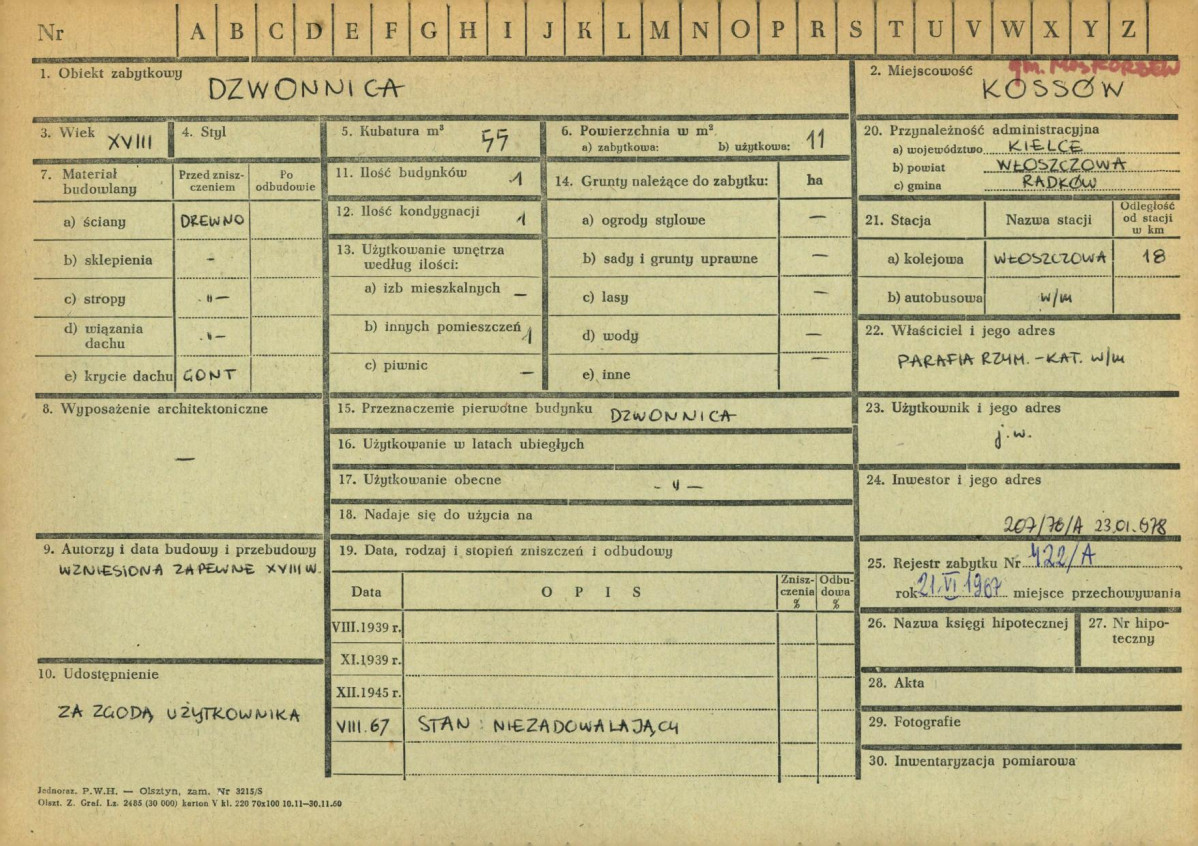 Nr A B C D E F G H I J K L M N O P R S T U V W X Y Z
1. Obiekt zabytkowy
DZWONNICA
2. Miejscowość
gm. MOSKORZEW
KOSSÓW
3. Wiek XVIII
4. Styl
5. Kubatura m³ 55
6. Powierzchnia w m²
a) zabytkowa: b) użytkowa: 11
20. Przynależność administracyjna
a) województwo KIELCE
b) powiat WŁOSZCZOWA
c) gmina RADKÓW
7. Materiał budowlany
Przed zniszczeniem
Po odbudowie
a) ściany DREWNO
b) sklepienia -
c) stropy -"-
d) wiązania dachu -"-
e) krycie dachu GONT
11. Ilość budynków 1
12. Ilość kondygnacji 1
13. Użytkowanie wnętrza
według ilości:
a) izb mieszkalnych —
b) innych pomieszczeń 1
c) piwnic —
14. Grunty należące do zabytku: ha
a) ogrody stylowe —
b) sady i grunty uprawne —
c) lasy —
d) wody —
e) inne —
21. Stacja Nazwa stacji Odległość od stacji w km
a) kolejowa WŁOSZCZOWA 18
b) autobusowa w/m
22. Właściciel i jego adres
PARAFIA RZYM.-KAT. w/m
8. Wyposażenie architektoniczne
—
15. Przeznaczenie pierwotne budynku DZWONNICA
16. Użytkowanie w latach ubiegłych
17. Użytkowanie obecne -"-
18. Nadaje się do użycia na
23. Użytkownik i jego adres
j.w.
24. Inwestor i jego adres
207/76/A 23.01.1978
9. Autorzy i data budowy i przebudowy
WZNIESIONA ZAPEWNE XVIII W.
10. Udostępnienie
ZA ZGODĄ UŻYTKOWNIKA
19. Data, rodzaj i stopień zniszczeń i odbudowy
Data OPIS Zniszczenia % Odbudowa %
VIII.1939 r.
XI.1939 r.
XII.1945 r.
VIII.67 STAN: NIEZADOWALAJĄCY
25. Rejestr zabytku Nr 422/A
rok 21.VI.1967 miejsce przechowywania
26. Nazwa księgi hipotecznej
27. Nr hipoteczny
28. Akta
29. Fotografie
30. Inwentaryzacja pomiarowa
Jednoraz. P.W.H. — Olsztyn, zam. Nr 3215/S
Olszt. Z. Graf. Lz. 2485 (30 000) karton V kl. 220 70x100 10.11—30.11.60